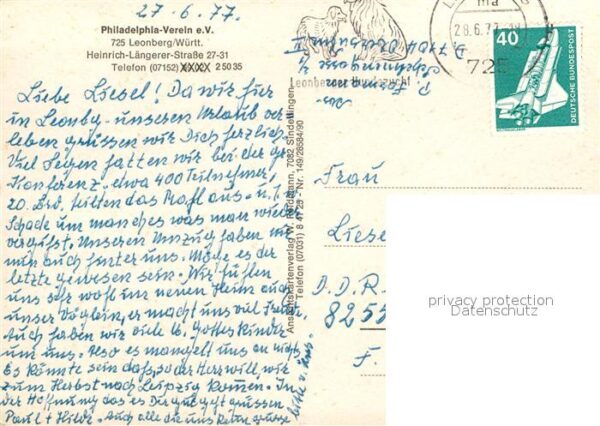 27.6.77.
Philadelphia-Verein e.V.
725 Leonberg/Württ.
Heinrich-Längerer-Straße 27-31
Telefon (07152) XXXX 25035
Liebe Liesel! Da wir hier
in Leonbg. unseren Urlaub ver
leben grüssen wir Dich herzlich.
Viel Segen hatten wir bei der
Konferenz. etwa 400 Teilnehmer,
20. Brd. teilten das Brot aus. u.
Schade um manches was man wieder
vergisst. Unseren Umzug haben wir
nun auch hinter uns. Möge es der
letzte gewesen sein. Wir fühlen
uns sehr wohl im neuen Heim auch
unser Vöglein, er macht uns viel Freude.
Auch haben wir viele lb. Gotteskinder
um uns. Also es mangelt uns an nichts.
Es könnte sein dass, so der Herr will, wir
zum Herbst nach Leipzig kommen. In
der Hoffnung das es Dir gut geht grüssen
Paul + Hilde. Auch alle die uns kennen grüsse
bitte v. uns.
Ansichtskartenverlag W. Herdtmann, 7032 Sindelfingen
Telefon (07031) 8 41 25 · Nr. 149/28584/90
28.6.77
725
Leonberger Hunde
40
DEUTSCHE BUNDESPOST
Frau
Liese
D.D.R.
8255
F.
privacy protection
Datenschutz